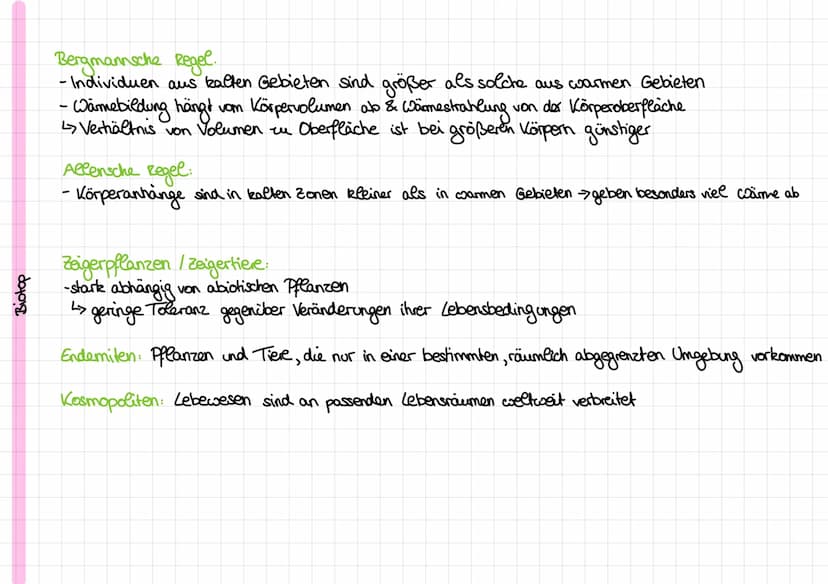 Bergmannsche Regel.
- Individuen aus kalten Gebieten sind größer als solche aus warmen Gebieten
- Wärmebildung hängt vom Körpervolumen ab & Wärmestrahlung von der Körperoberfläche
↳ Verhältnis von Volumen zu Oberfläche ist bei größeren Körpern günstiger
Allensche Regel:
- Körperanhänge sind in kalten Zonen kleiner als in warmen Gebieten → geben besonders viel Wärme ab
Zeigerpflanzen / Zeigertiere:
- stark abhängig von abiotischen Pflanzen
↳ geringe Toleranz gegenüber Veränderungen ihrer Lebensbedingungen
Biotop
Endemiten: Pflanzen und Tiere, die nur in einer bestimmten, räumlich abgegrenzten Umgebung vorkommen
Kosmopoliten: Lebewesen sind an passenden Lebensräumen weltweit verbreitet